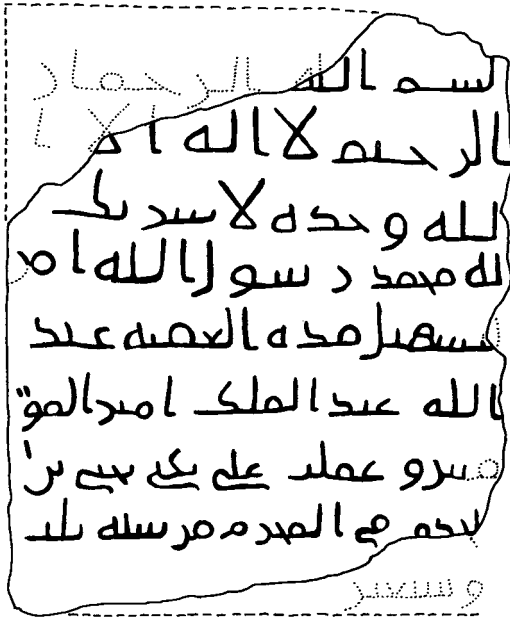 بسم الله الرحمن
الرحيم لا اله الا ا
لله وحده لا شريك
له محمد رسول الله امر
بتسهيل هذه العقبه عبد
الله عبد الملك امير المؤ
منين وعملت على يدي يحيى بن ا
لحكم في المحرم من سنه ثلث
وسبعين